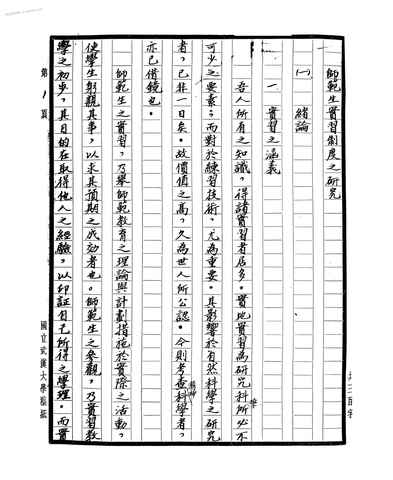 師範生實習制度之研究
(一) 緒論
一 實習之涵義
吾人所有之知識，得諸實習者居多。實地實習為研究科所必不
可少之要素；而對於練習技術，尤為重要。其影響於自然科學之研究
者，已非一日矣。故價值之高，久為世人所公認。今則考查科學者，
亦已借鏡也。
師範生之實習，乃舉師範教育之理論與計劃措施於實際之活動，
使學生躬親其事，以求其預期之成効者也。師範生之參觀，乃實習教
學之初步，其目的在取得他人之經驗，以印証自己所得之學理。而實
第 1 頁
國立武漢大學稿紙